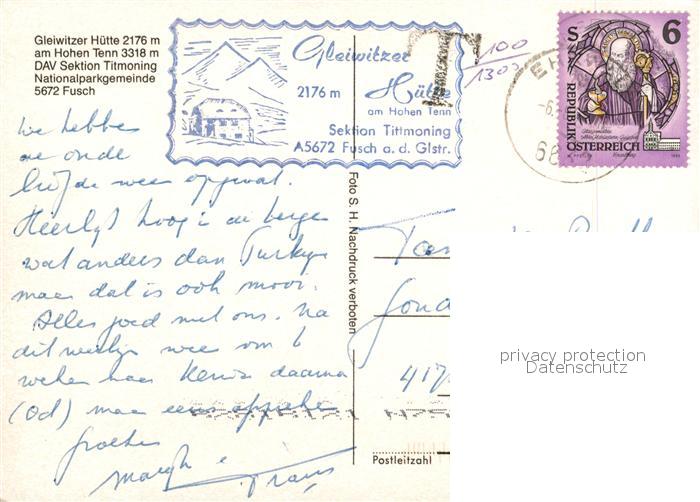 Gleiwitzer Hütte 2176 m
am Hohen Tenn 3318 m
DAV Sektion Titmoning
Nationalparkgemeinde
5672 Fusch
Gleiwitzer
Hütte
2176 m
am Hohen Tenn
Sektion Tittmoning
A5672 Fusch a. d. Glstr.
T
100
1300
S 6
REPUBLIK
ÖSTERREICH
We hebben
de oude
weer opgevat.
Heerlijk hoog in de bergen
wat anders dan Turkije
maar dat is ook mooi.
Alles goed met ons. Na
dit weekje weer om 6
weken naar Kenia daarna
(Od) maar eens
groeten
Margh e
Frans
Foto S. H. Nachdruck verboten
417
Postleitzahl
privacy protection
Datenschutz